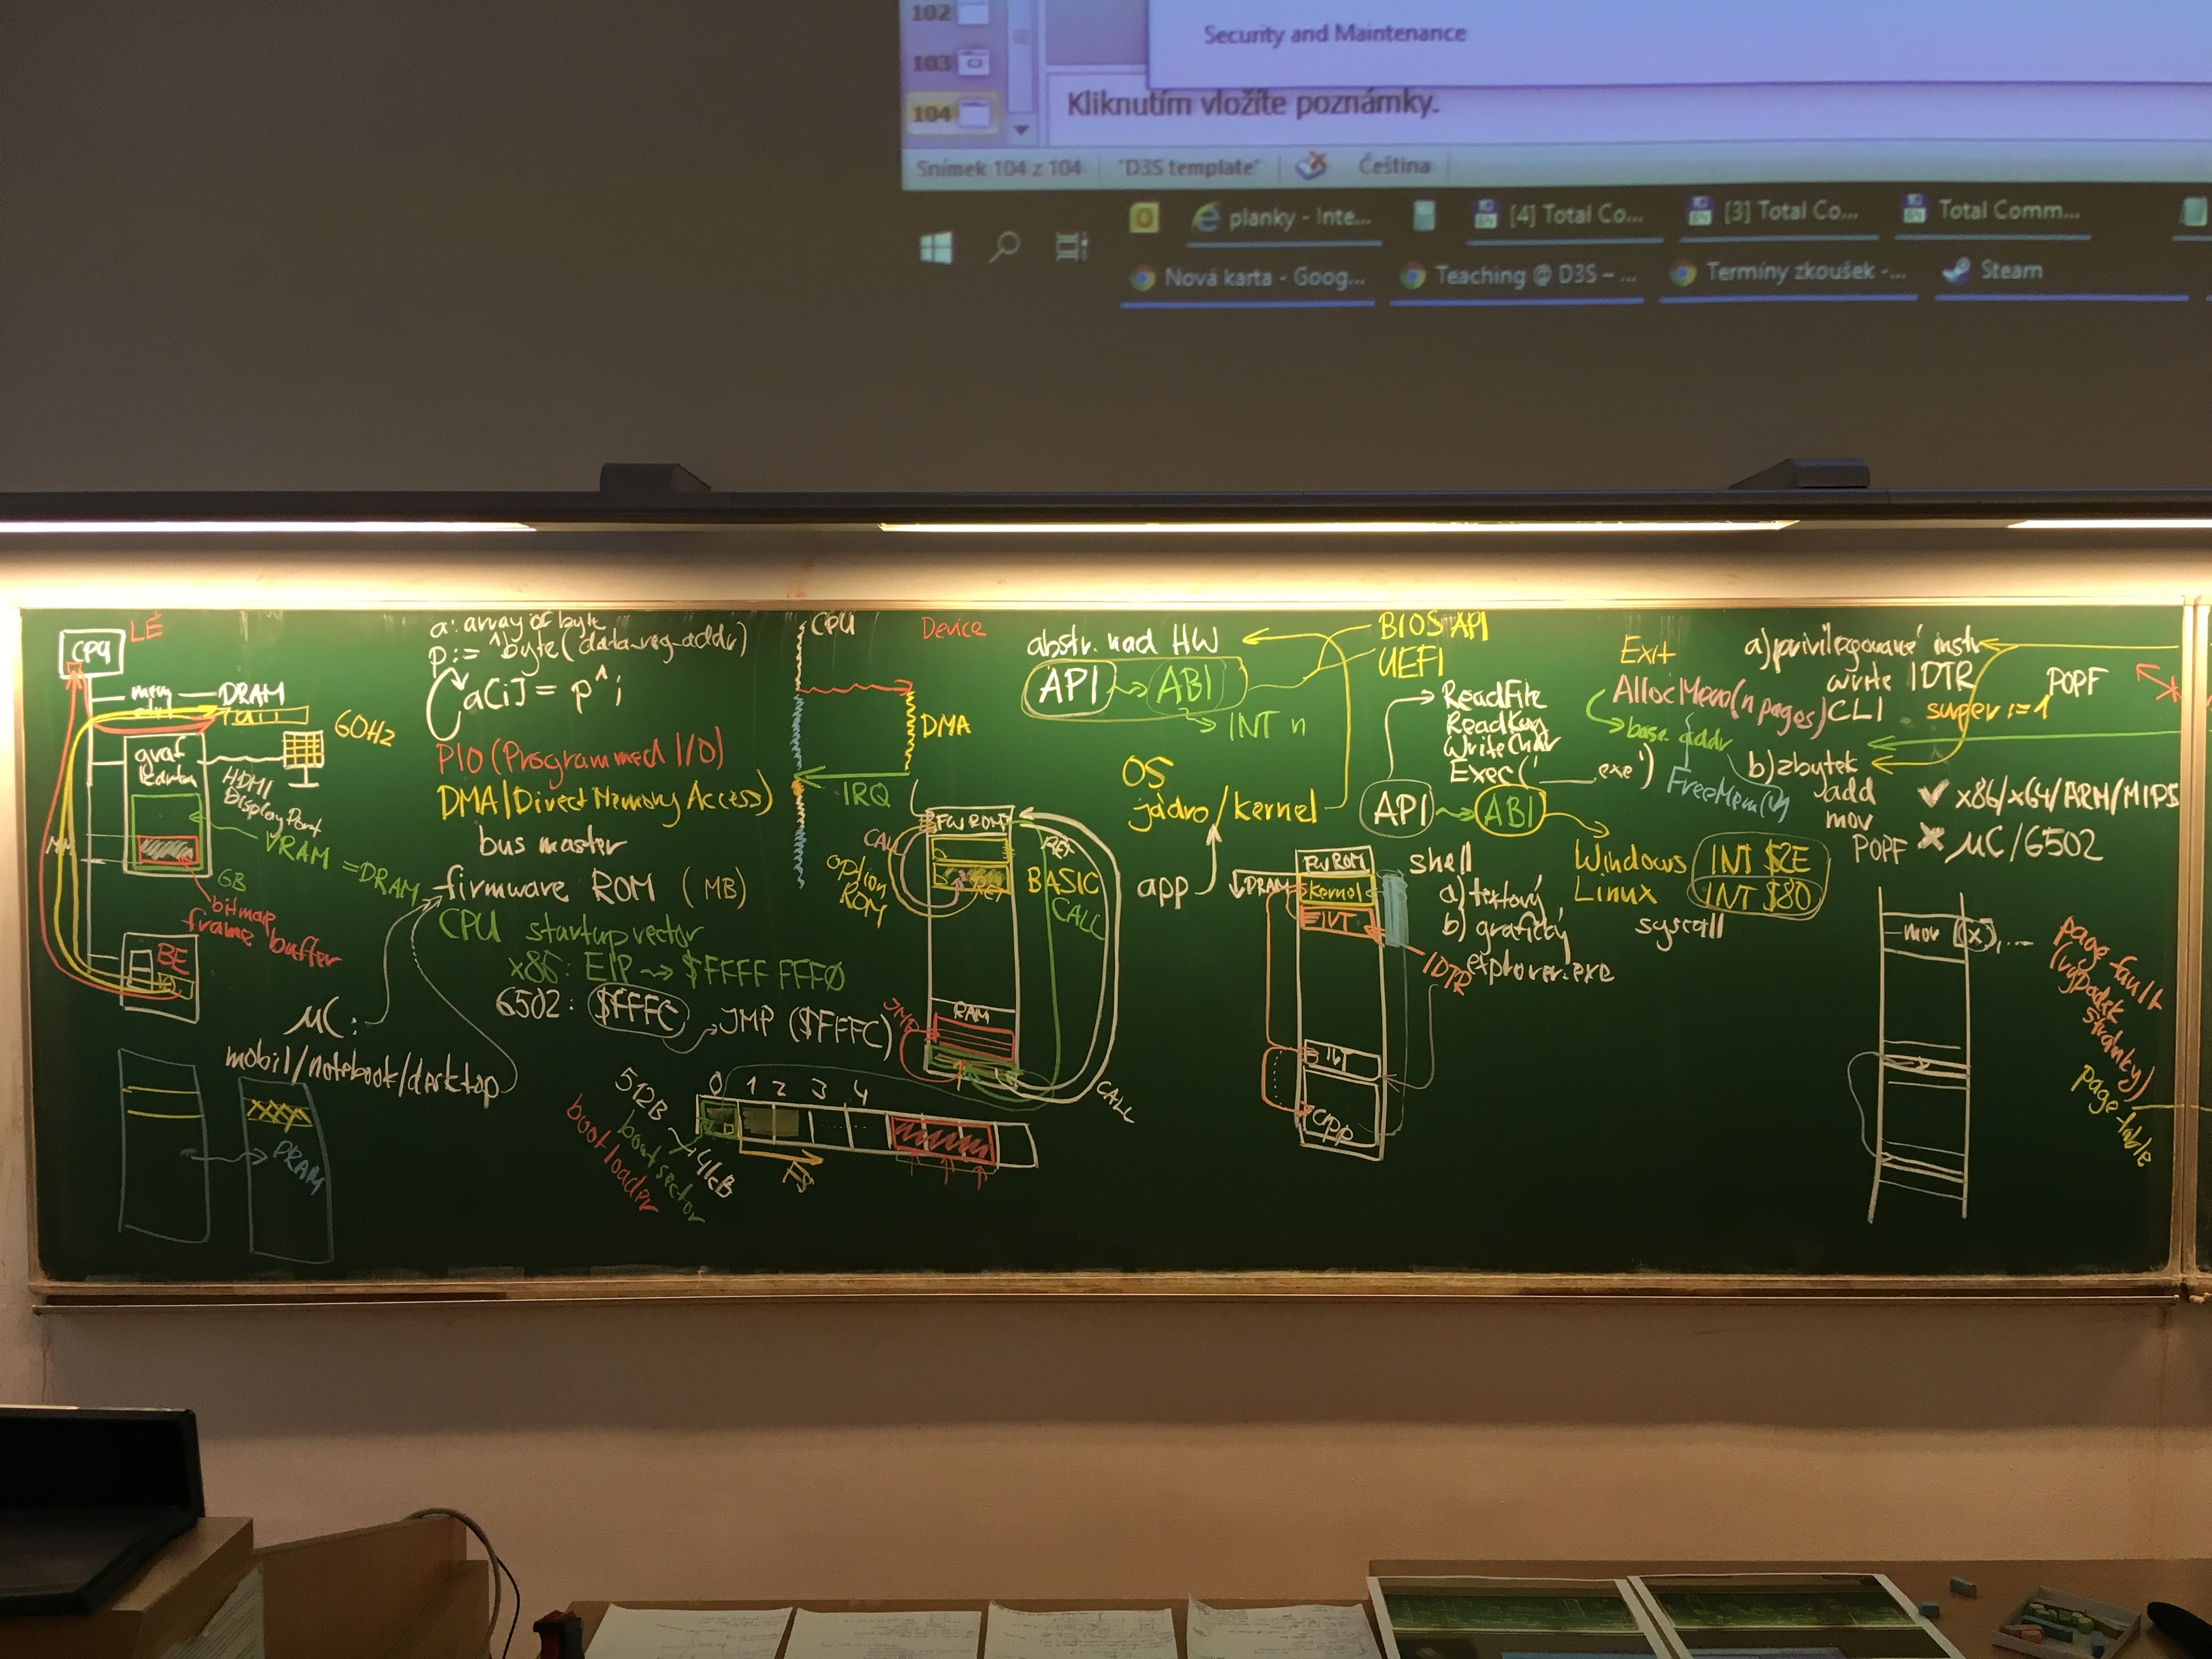 102
103
104
Security and Maintenance
Kliknutím vložíte poznámky.
Snímek 104 z 104
"D3S template"
Čeština
planky - Inte...
[4] Total Co...
[3] Total Co...
Total Comm...
Nová karta - Goog...
Teaching @ D3S – ...
Termíny zkoušek -...
Steam
CPU
LE
DRAM
graf
karta
60Hz
HDMI
DisplayPort
VRAM = DRAM
GB
bitmap
frame buffer
BE
µC:
mobil/notebook/desktop
DRAM
a: array of byte
p:= ^byte(data_reg_addr)
a[i] = p^;
PIO (Programmed I/O)
DMA (Direct Memory Access)
bus master
firmware ROM (MB)
CPU startup vector
x86: EIP → $FFFF FFF0
6502: $FFFC
JMP ($FFFC)
512B
0 1 2 3 4
boot sector
4kB
bootloader
FS
CPU
Device
DMA
IRQ
FW ROM
CALL
option
ROM
RET
RET
BASIC
CALL
RAM
JMP
CALL
abstr. nad HW
API → ABI
INT n
BIOS API
UEFI
OS
jádro/kernel
app
ReadFile
ReadKey
WriteChar
Exec('____.exe')
API → ABI
FW ROM
DRAM
kernel
IVT
IDTR
app
shell
a) textový
b) grafický
explorer.exe
Windows INT $2E
Linux INT $80
syscall
Exit
AllocMem(n pages)
base addr
FreeMem()
a) privilegované instr.
write IDTR
CLI
POPF
super:=1
b) zbytek
add
mov
POPF
✓ x86/x64/ARM/MIPS
✗ µC/6502
mov [x], ...
page fault
(výpadek
stránky)
page table